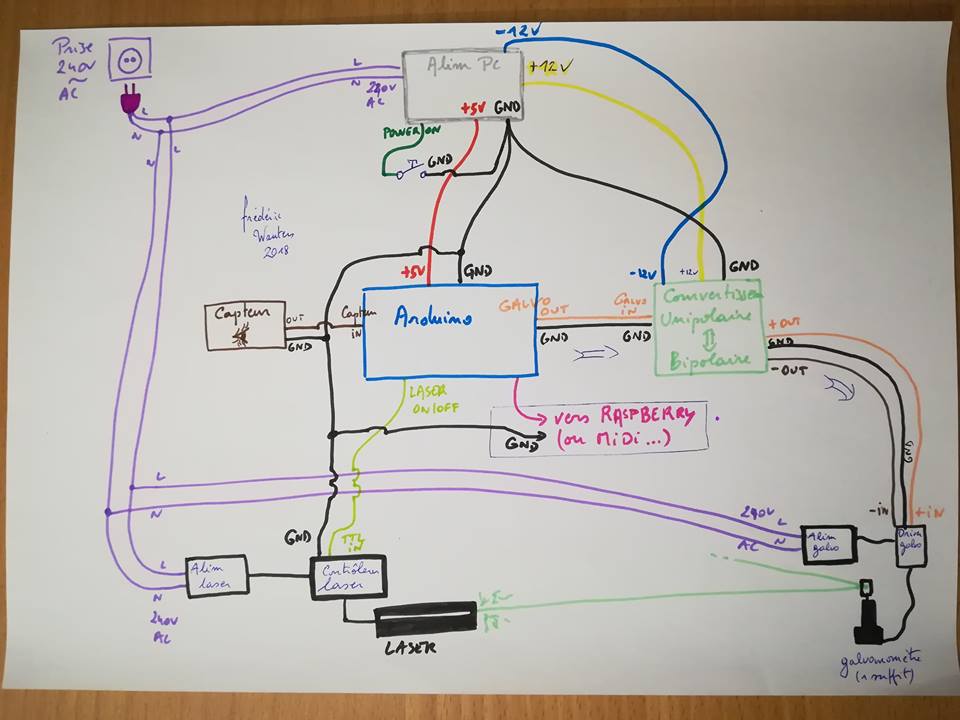 Prise
240V
~
AC
L
N
L
N
240V
AC
Alim Pc
-12V
+12V
+5V
GND
POWER ON
GND
L
N
frédéric
Wauters
2018
+5V
GND
-12V
+12V
GND
Capteur
OUT
GND
Capteur
IN
Arduino
GALVO
OUT
GND
GALVO
IN
GND
Convertisseur
Unipolaire
Bipolaire
+OUT
GND
-OUT
LASER
ON/OFF
vers RASPBERRY
(ou MiDi...)
GND
GND
L
N
240V
AC
L
N
Alim
galvo
-IN
+IN
Driver
galvo
GND
TTL
IN
L
N
240V
AC
Alim
laser
Contrôleur
laser
LASER
galvanomètre
(1 suffit)